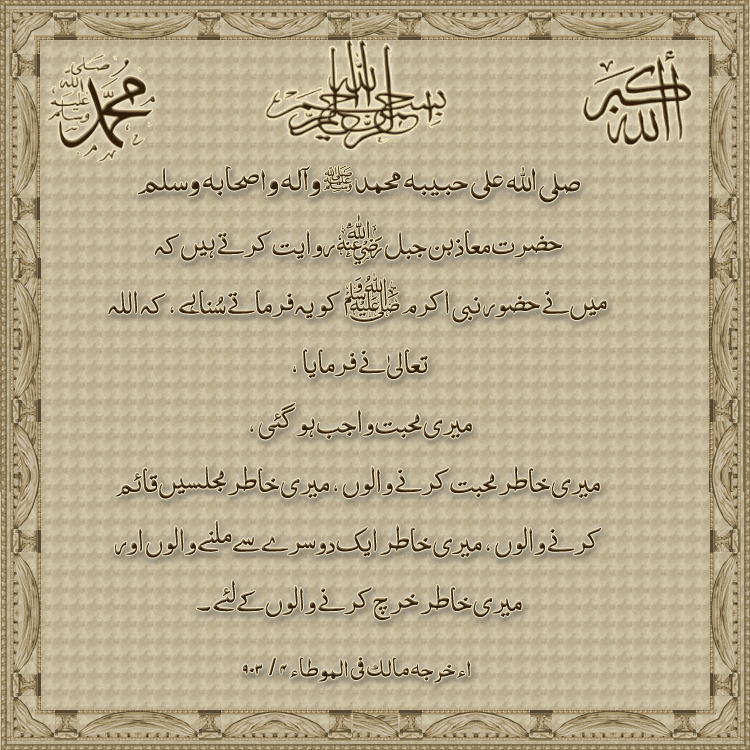 الله أكبر
بسم الله الرحمن الرحيم
محمد صلى الله عليه وسلم
صلی اللہ علی حبیبہ محمد ﷺ وآلہ و اصحابہ وسلم
حضرت معاذ بن جبل رضی اللہ عنہ روایت کرتے ہیں کہ
میں نے حضور نبی اکرم ﷺ کو یہ فرماتے سُنا ہے ، کہ اللہ
تعالیٰ نے فرمایا ،
میری محبت واجب ہو گئی ،
میری خاطر محبت کرنے والوں ، میری خاطر مجلسیں قائم
کرنے والوں ، میری خاطر ایک دوسرے سے ملنے والوں اور
میری خاطر خرچ کرنے والوں کے لئے ۔
اٴخرجہ مالک فی الموطاء ۴ / ۹۰۳